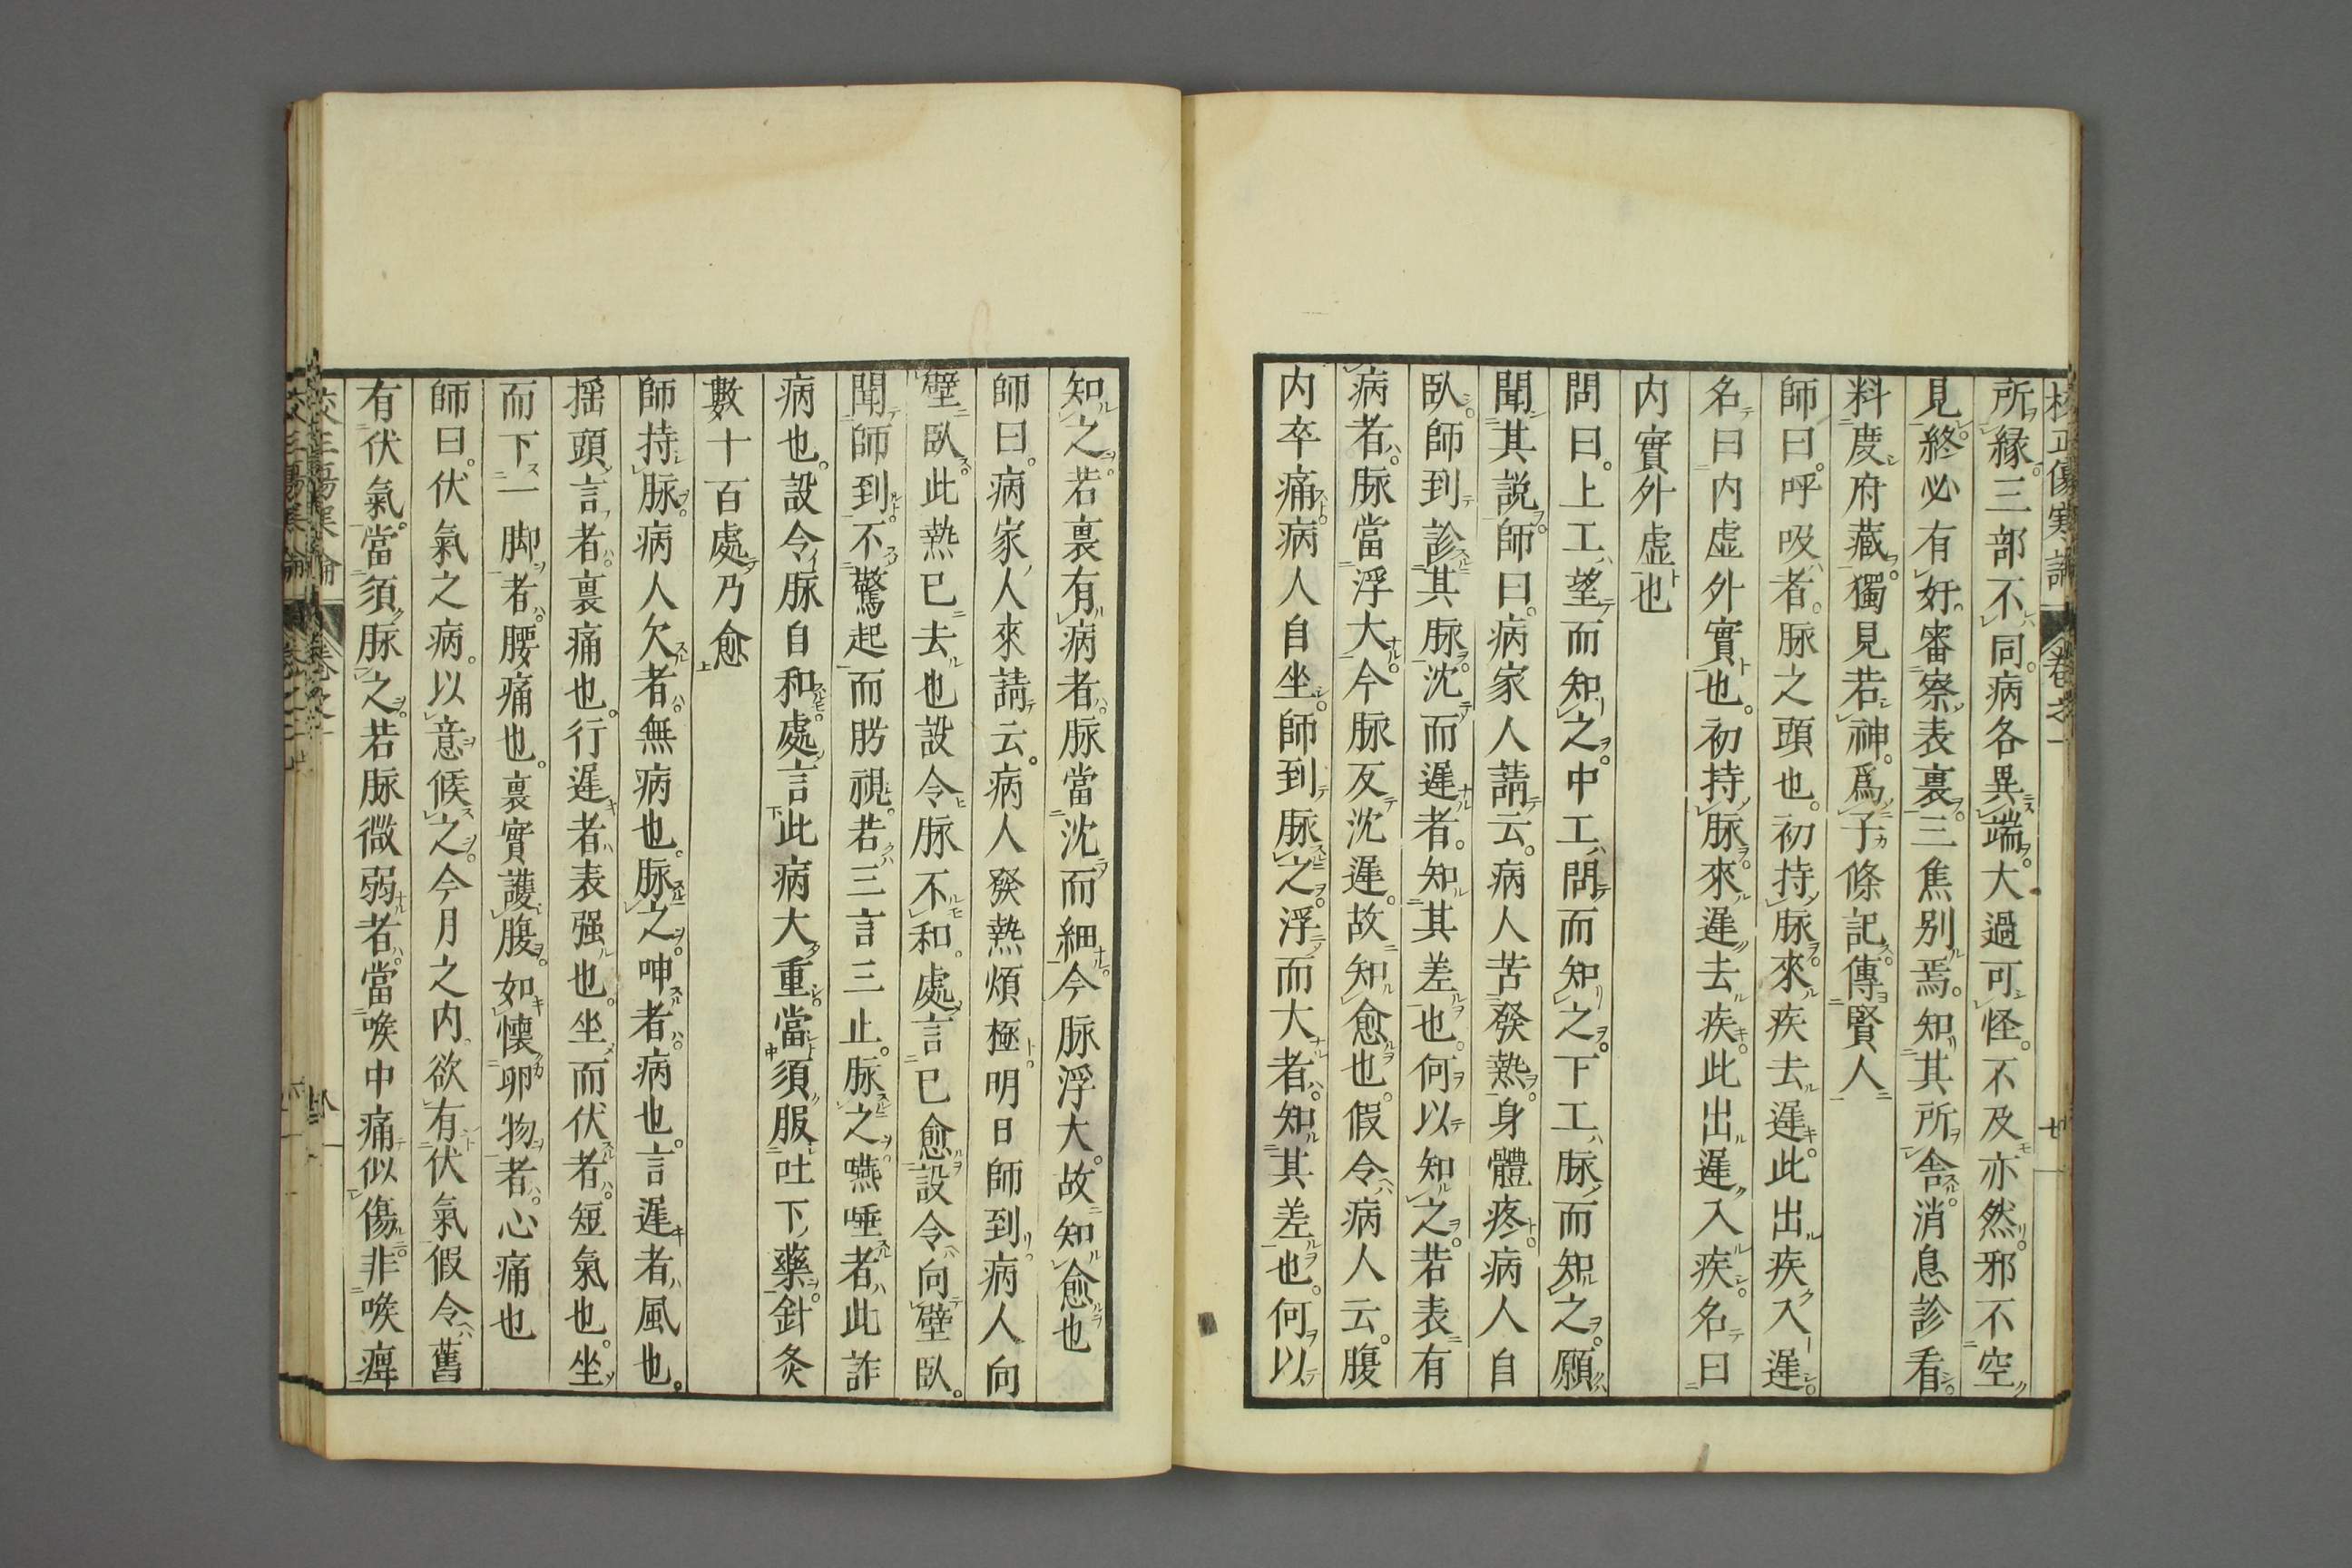 校正傷寒論 卷之一
所縁三部不同病各異端大過可怪不及亦然邪不空
見終必有奸審察表裏三焦别焉知其所舎消息診看
料度府藏獨見若神爲子條記傳賢人
師曰呼吸者脉之頭也初持脉來疾去遲此出疾入遲
名曰内虚外實也初持脉來遲去疾此出遲入疾名曰
内實外虚也
問曰上工望而知之中工問而知之下工脉而知之願
聞其説師曰病家人請云病人苦發熱身體疼病人自
臥師到診其脉沈而遲者知其差也何以知之若表有
病者脉當浮大今脉反沈遲故知愈也假令病人云腹
内卒痛病人自坐師到脉之浮而大者知其差也何以
知之若裏有病者脉當沈而細今脉浮大故知愈也
師曰病家人來請云病人發熱煩極明日師到病人向
壁臥此熱已去也設令脉不和處言已愈設令向壁臥
聞師到不驚起而眄視若三言三止脉之嚥唾者此詐
病也設令脉自和處言此病大重當須服吐下藥針灸
數十百處乃愈
師持脉病人欠者無病也脉之呻者病也言遲者風也
揺頭言者裏痛也行遲者表强也坐而伏者短氣也坐
而下一脚者腰痛也裏實護腹如懷卵物者心痛也
師曰伏氣之病以意候之今月之内欲有伏氣假令舊
有伏氣當須脉之若脉微弱者當喉中痛似傷非喉痺